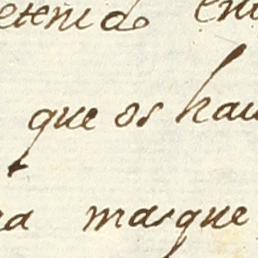 etenido en
que os hau
na masque